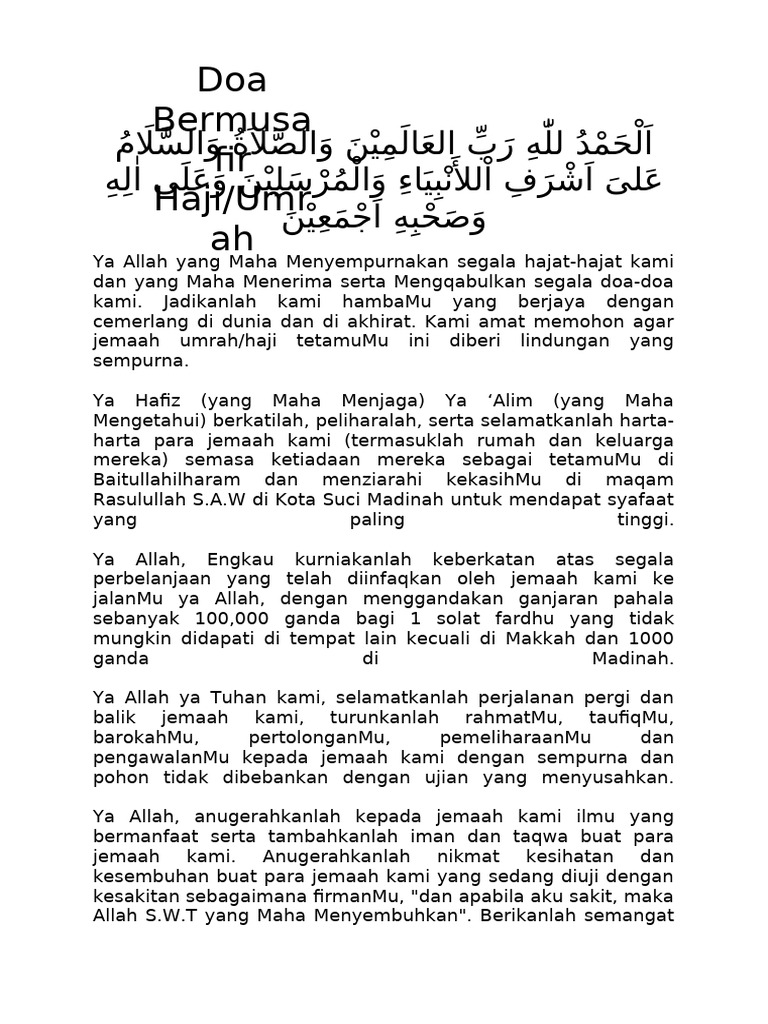 Doa
Bermusa
fir
Haji/Umr
ah
اَلْحَمْدُ للّٰهِ رَبِّ العَالَمِيْنَ وَالصَّلاَةُ وَالسَّلَامُ
عَلىَ اَشْرَفِ اْللأَنْبِيَاءِ وَالْمُرْسَلِيْنَ وَعَلَى اٰلِهِ
وَصَحْبِهِ اَجْمَعِيْنَ
Ya Allah yang Maha Menyempurnakan segala hajat-hajat kami
dan yang Maha Menerima serta Mengqabulkan segala doa-doa
kami. Jadikanlah kami hambaMu yang berjaya dengan
cemerlang di dunia dan di akhirat. Kami amat memohon agar
jemaah umrah/haji tetamuMu ini diberi lindungan yang
sempurna.
Ya Hafiz (yang Maha Menjaga) Ya ‘Alim (yang Maha
Mengetahui) berkatilah, peliharalah, serta selamatkanlah harta-
harta para jemaah kami (termasuklah rumah dan keluarga
mereka) semasa ketiadaan mereka sebagai tetamuMu di
Baitullahilharam dan menziarahi kekasihMu di maqam
Rasulullah S.A.W di Kota Suci Madinah untuk mendapat syafaat
yang paling tinggi.
Ya Allah, Engkau kurniakanlah keberkatan atas segala
perbelanjaan yang telah diinfaqkan oleh jemaah kami ke
jalanMu ya Allah, dengan menggandakan ganjaran pahala
sebanyak 100,000 ganda bagi 1 solat fardhu yang tidak
mungkin didapati di tempat lain kecuali di Makkah dan 1000
ganda di Madinah.
Ya Allah ya Tuhan kami, selamatkanlah perjalanan pergi dan
balik jemaah kami, turunkanlah rahmatMu, taufiqMu,
barokahMu, pertolonganMu, pemeliharaanMu dan
pengawalanMu kepada jemaah kami dengan sempurna dan
pohon tidak dibebankan dengan ujian yang menyusahkan.
Ya Allah, anugerahkanlah kepada jemaah kami ilmu yang
bermanfaat serta tambahkanlah iman dan taqwa buat para
jemaah kami. Anugerahkanlah nikmat kesihatan dan
kesembuhan buat para jemaah kami yang sedang diuji dengan
kesakitan sebagaimana firmanMu, "dan apabila aku sakit, maka
Allah S.W.T yang Maha Menyembuhkan". Berikanlah semangat